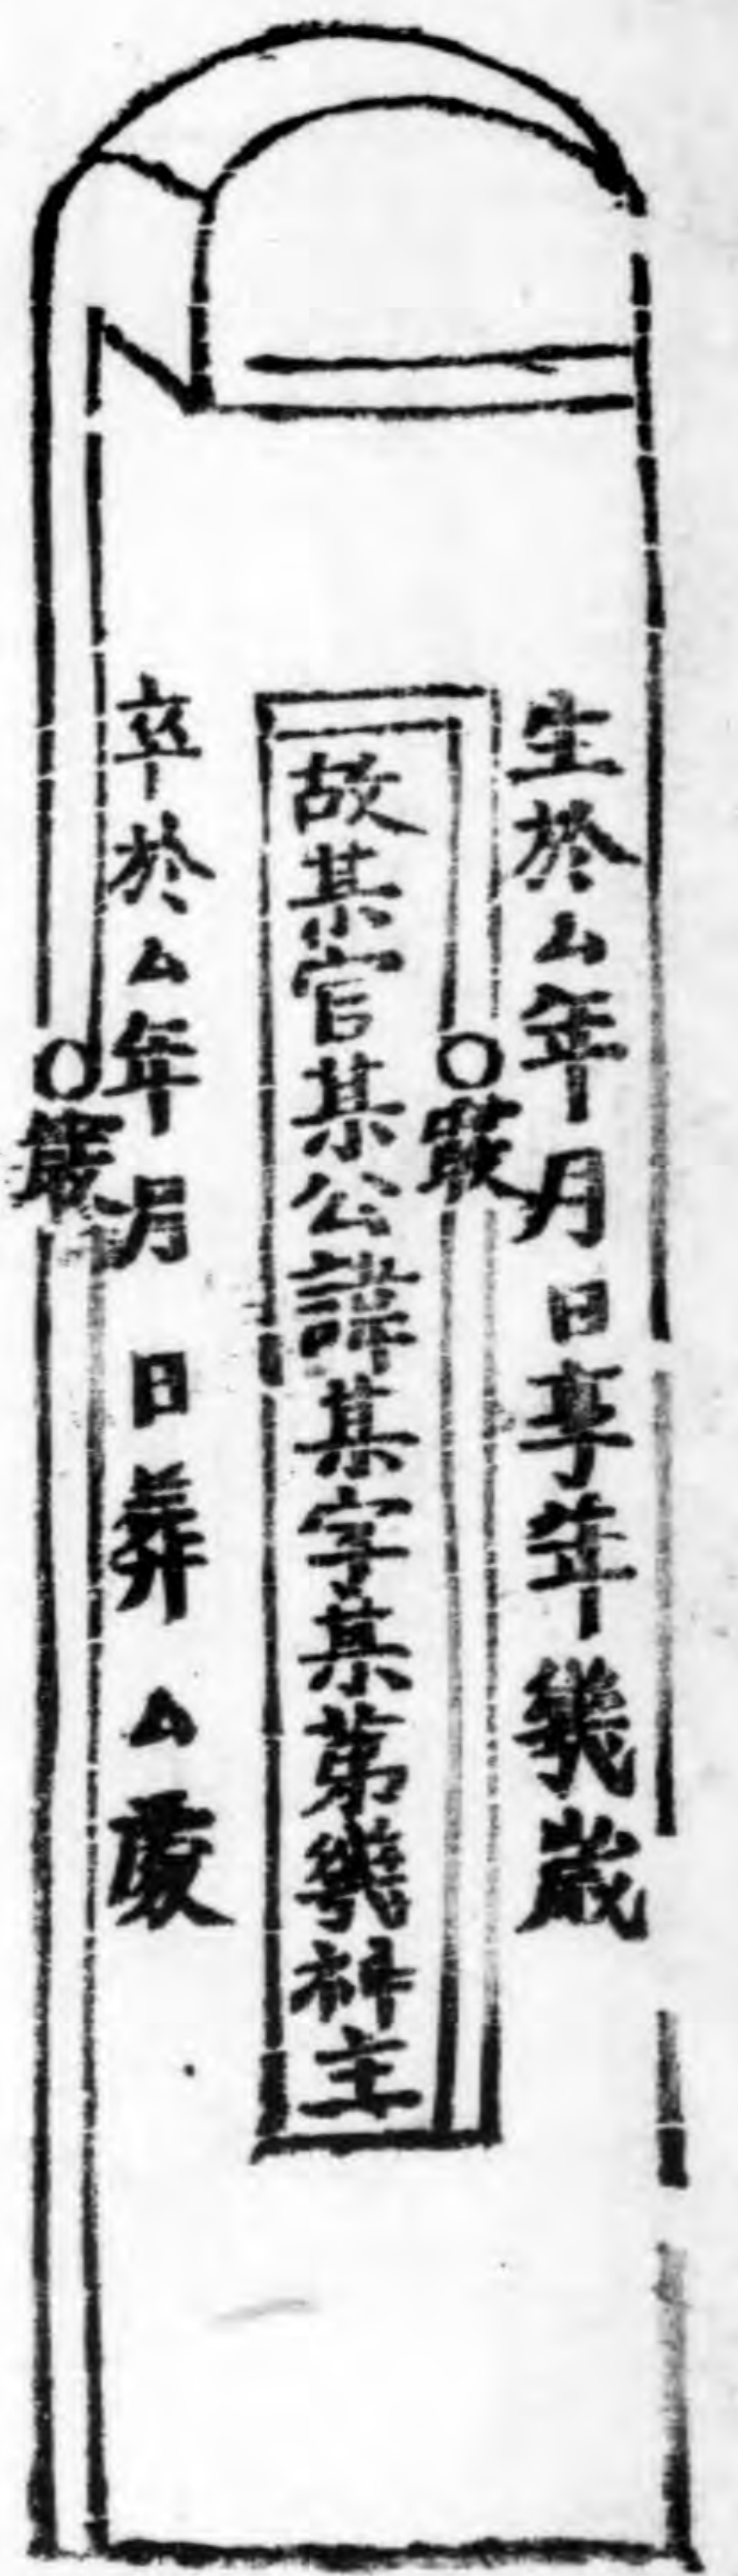 生於厶年月日享年幾歲
竅
故某官某公諱某字某第幾神主
卒於厶年月日葬厶處
竅